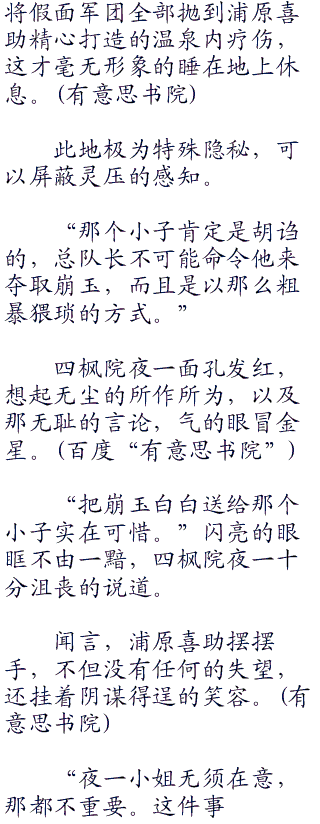 将假面军团全部抛到浦原喜
助精心打造的温泉内疗伤，
这才毫无形象的睡在地上休
息。(有意思书院)
此地极为特殊隐秘，可
以屏蔽灵压的感知。
“那个小子肯定是胡诌
的，总队长不可能命令他来
夺取崩玉，而且是以那么粗
暴猥琐的方式。”
四枫院夜一面孔发红，
想起无尘的所作所为，以及
那无耻的言论，气的眼冒金
星。(百度“有意思书院”)
“把崩玉白白送给那个
小子实在可惜。”闪亮的眼
眶不由一黯，四枫院夜一十
分沮丧的说道。
闻言，浦原喜助摆摆
手，不但没有任何的失望，
还挂着阴谋得逞的笑容。(有
意思书院)
“夜一小姐无须在意，
那都不重要。这件事